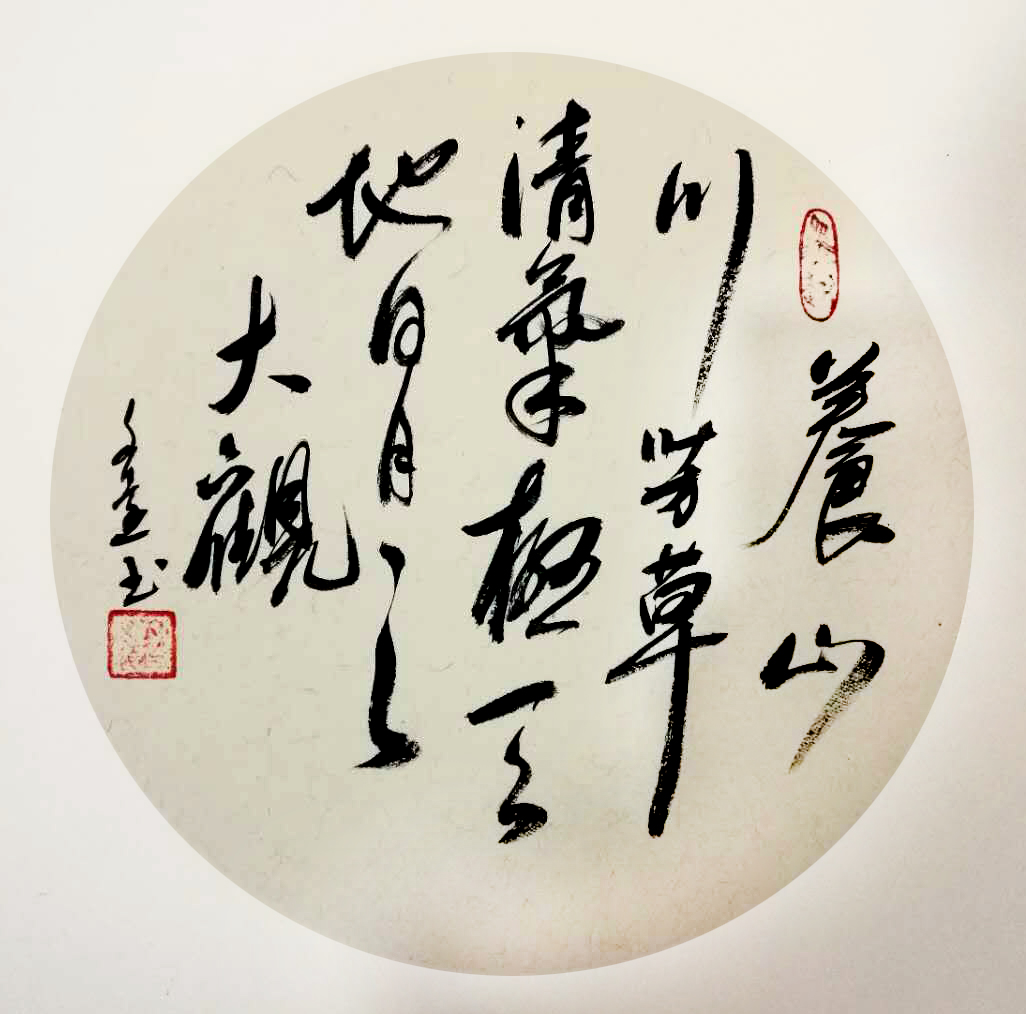 養山
川芳草
清氣極天
地日月之
大觀